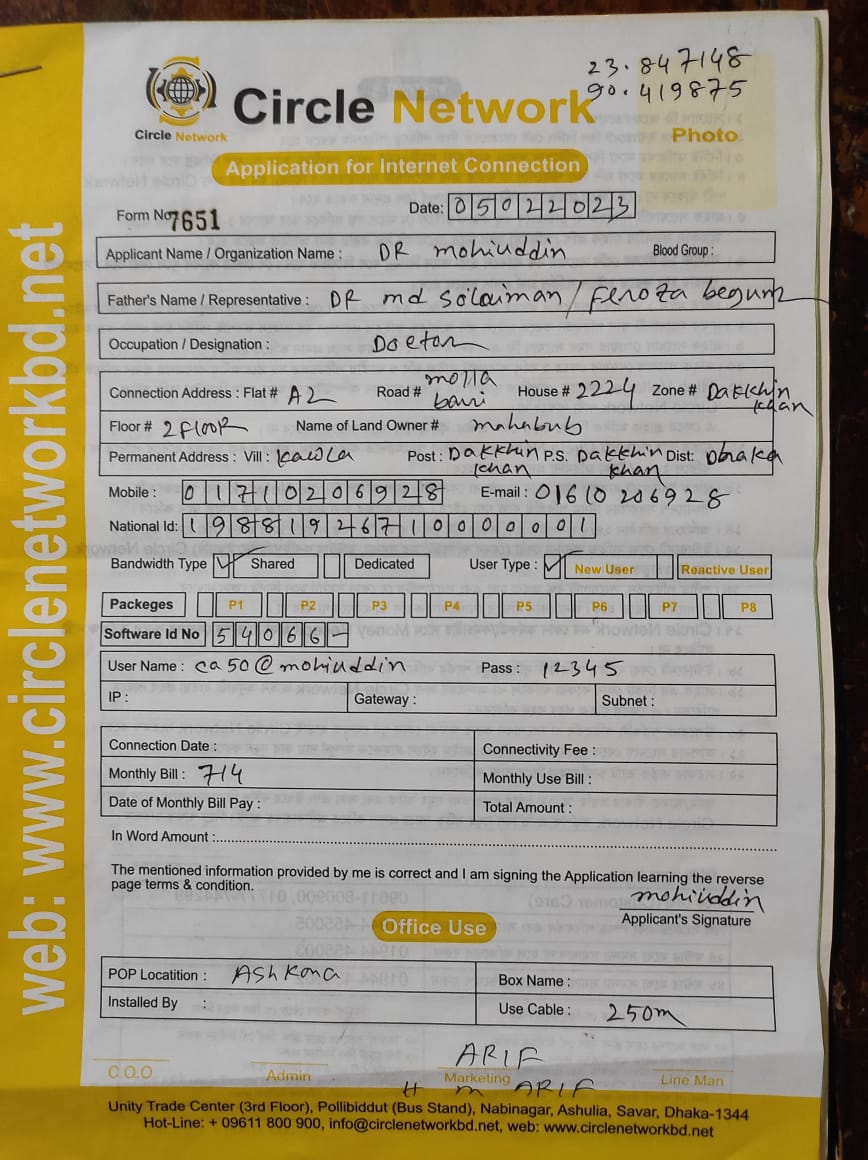 23.847148
90.419875
Circle Network
Circle Network
Photo
Application for Internet Connection
Form No 7651
Date: 05022023
Applicant Name / Organization Name : DR mohiuddin Blood Group :
Father's Name / Representative : DR md solaiman / Feroza begum
Occupation / Designation : Doctor
Connection Address : Flat # A2 Road # molla bari House # 2224 Zone # Dakkhin khan
Floor # 2 Floor Name of Land Owner # mahabub
Permanent Address : Vill : kawla Post : Dakkhin khan P.S. Dakkhin khan Dist: Dhaka
Mobile : 01710206928 E-mail : 01610206928
National Id: 19881926710000001
Bandwidth Type Shared Dedicated User Type : New User Reactive User
Packeges P1 P2 P3 P4 P5 P6 P7 P8
Software Id No 54066-
User Name : ca50@mohiuddin Pass : 12345
IP : Gateway : Subnet :
Connection Date : Connectivity Fee :
Monthly Bill : 714 Monthly Use Bill :
Date of Monthly Bill Pay : Total Amount :
In Word Amount :
The mentioned information provided by me is correct and I am signing the Application learning the reverse
page terms & condition.
mohiuddin
Applicant's Signature
Office Use
POP Locatition : Ashkona Box Name :
Installed By : Use Cable : 250m
ARIF
C.O.O Admin Marketing Line Man
H m ARIF
Unity Trade Center (3rd Floor), Pollibiddut (Bus Stand), Nabinagar, Ashulia, Savar, Dhaka-1344
Hot-Line: + 09611 800 900, info@circlenetworkbd.net, web: www.circlenetworkbd.net
web: www.circlenetworkbd.net